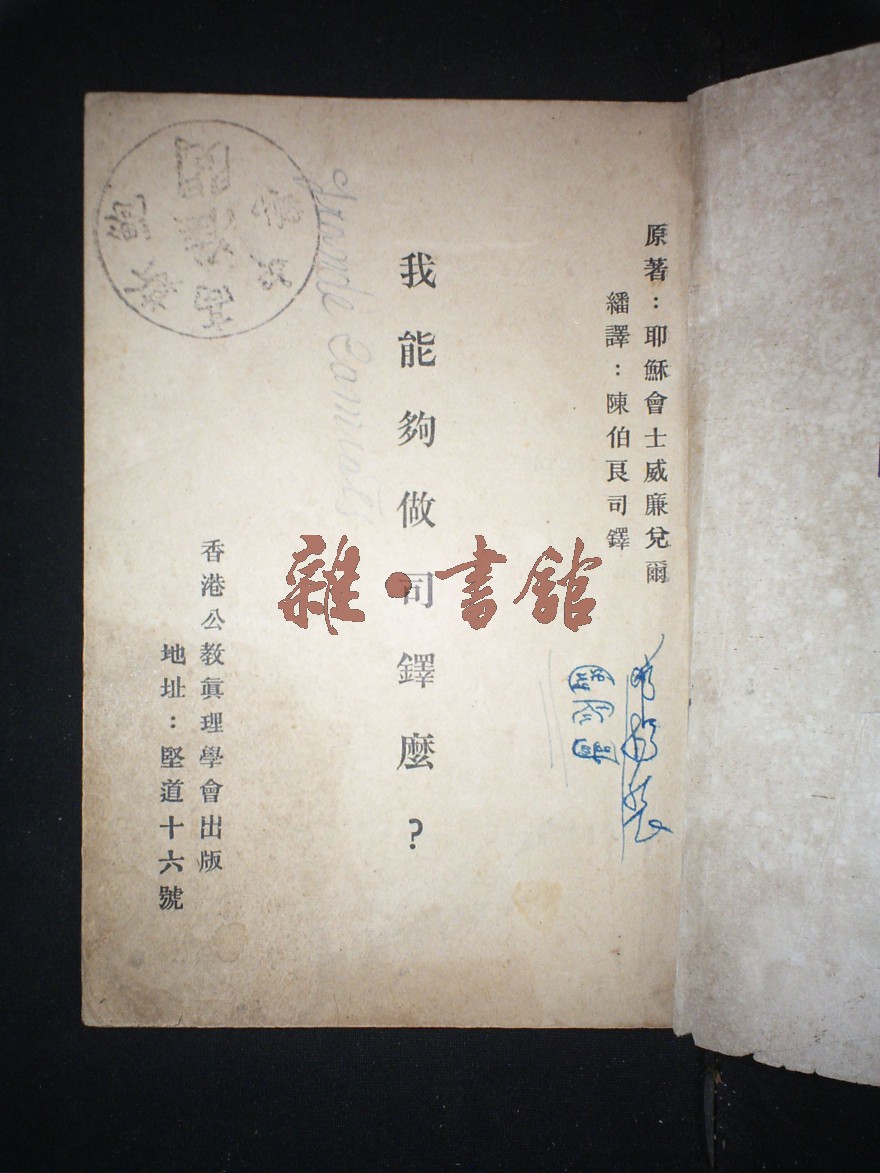 原著：耶穌會士威廉兌爾
繙譯：陳伯良司鐸
我能夠做司鐸麼？
香港公教眞理學會出版
地址：堅道十六號
雜·書館